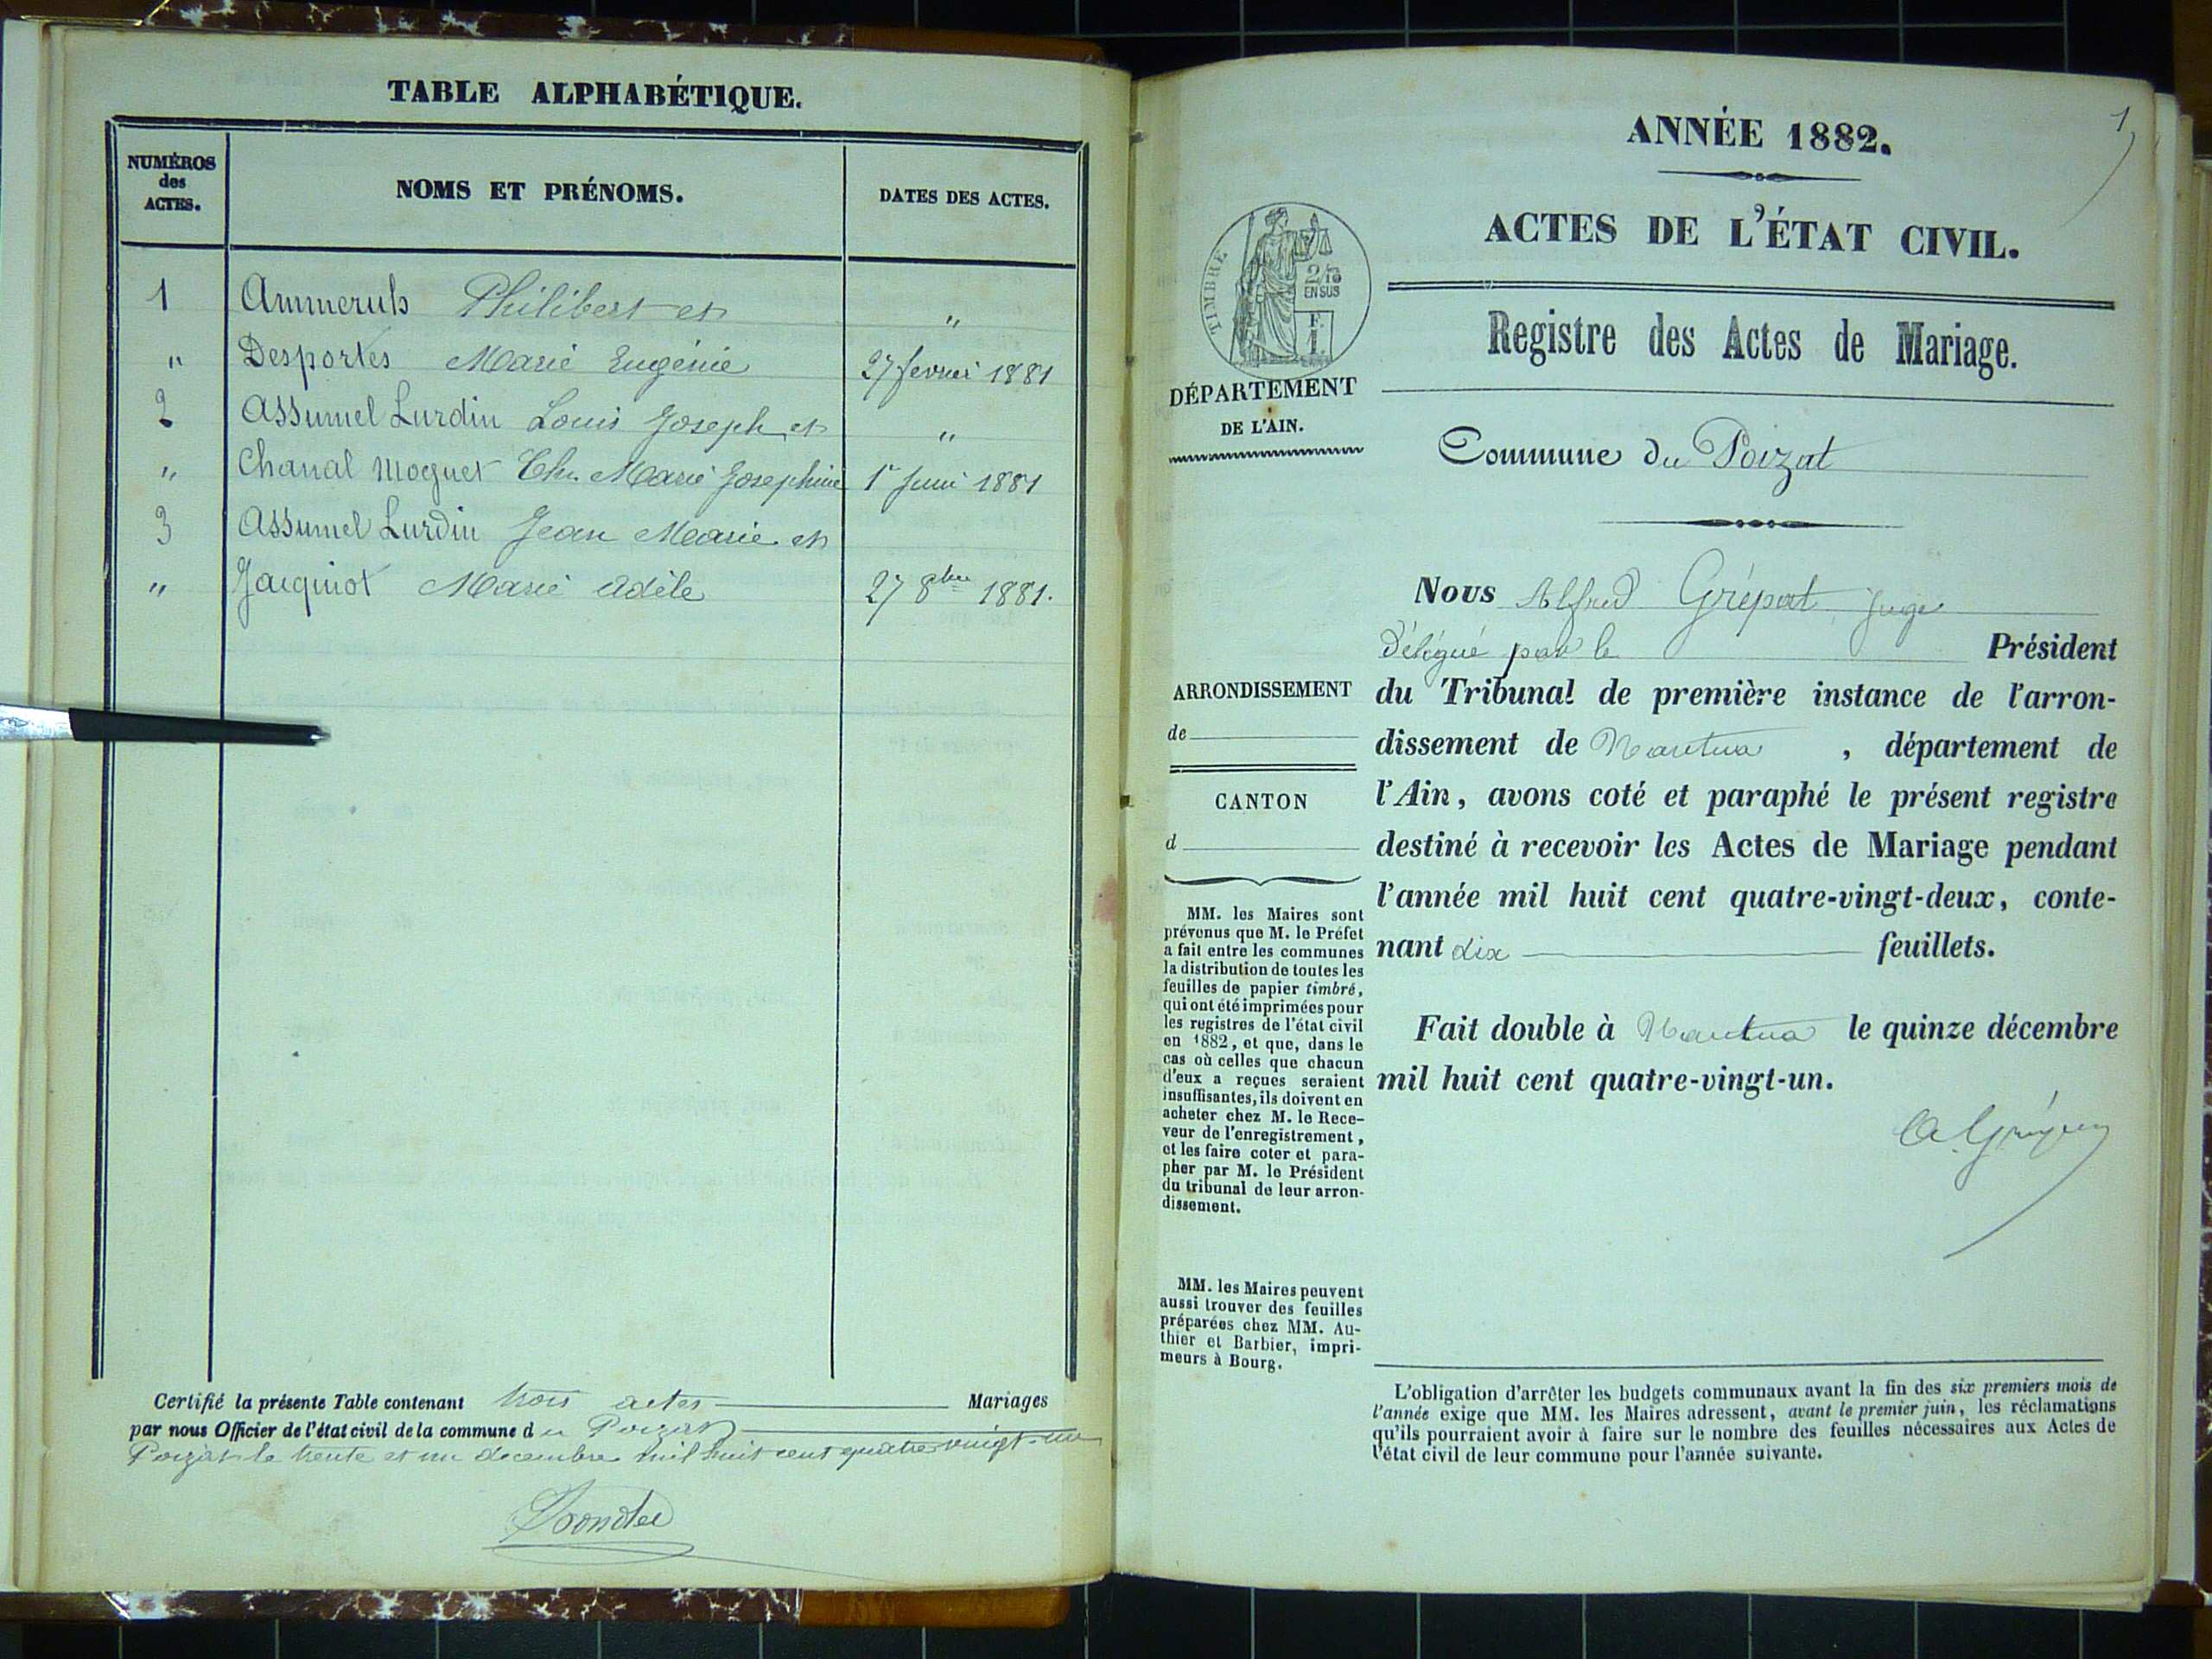 TABLE ALPHABÉTIQUE.
NUMÉROS des ACTES.
NOMS ET PRÉNOMS.
DATES DES ACTES.
1 Philibert et "
" Desportes Marie Eugénie 27 fevrier 1881
2 Assumel Lurdin Louis Joseph et "
" Chanal Moguet Marie Josephine 1er Juin 1881
3 Assumel Lurdin Jean Marie et
" Jacquiot Marie Adèle 27 8bre 1881.
Certifié la présente Table contenant trois actes Mariages
par nous Officier de l'état civil de la commune du Poizat
Poizat le trente et un decembre mil huit cent quatre vingt-un
1
ANNÉE 1882.
ACTES DE L'ÉTAT CIVIL.
Registre des Actes de Mariage.
TIMBRE
2/10
EN SUS
F.
1.
DÉPARTEMENT
DE L'AIN.
Commune du Poizat
ARRONDISSEMENT
de
CANTON
d
MM. les Maires sont
prévenus que M. le Préfet
a fait entre les communes
la distribution de toutes les
feuilles de papier timbré,
qui ont été imprimées pour
les registres de l'état civil
en 1882, et que, dans le
cas où celles que chacun
d'eux a reçues seraient
insuffisantes, ils doivent en
acheter chez M. le Rece-
veur de l'enregistrement,
et les faire coter et para-
pher par M. le Président
du tribunal de leur arron-
dissement.
MM. les Maires peuvent
aussi trouver des feuilles
préparées chez MM. Au-
thier et Barbier, impri-
meurs à Bourg.
Nous Alfred Juge
Délégué par le Président
du Tribunal de première instance de l'arron-
dissement de Nantua, département de
l'Ain, avons coté et paraphé le présent registre
destiné à recevoir les Actes de Mariage pendant
l'année mil huit cent quatre-vingt-deux, conte-
nant dix feuillets.
Fait double à Nantua le quinze décembre
mil huit cent quatre-vingt-un.
L'obligation d'arrêter les budgets communaux avant la fin des six premiers mois de
l'année exige que MM. les Maires adressent, avant le premier juin, les réclamations
qu'ils pourraient avoir à faire sur le nombre des feuilles nécessaires aux Actes de
l'état civil de leur commune pour l'année suivante.